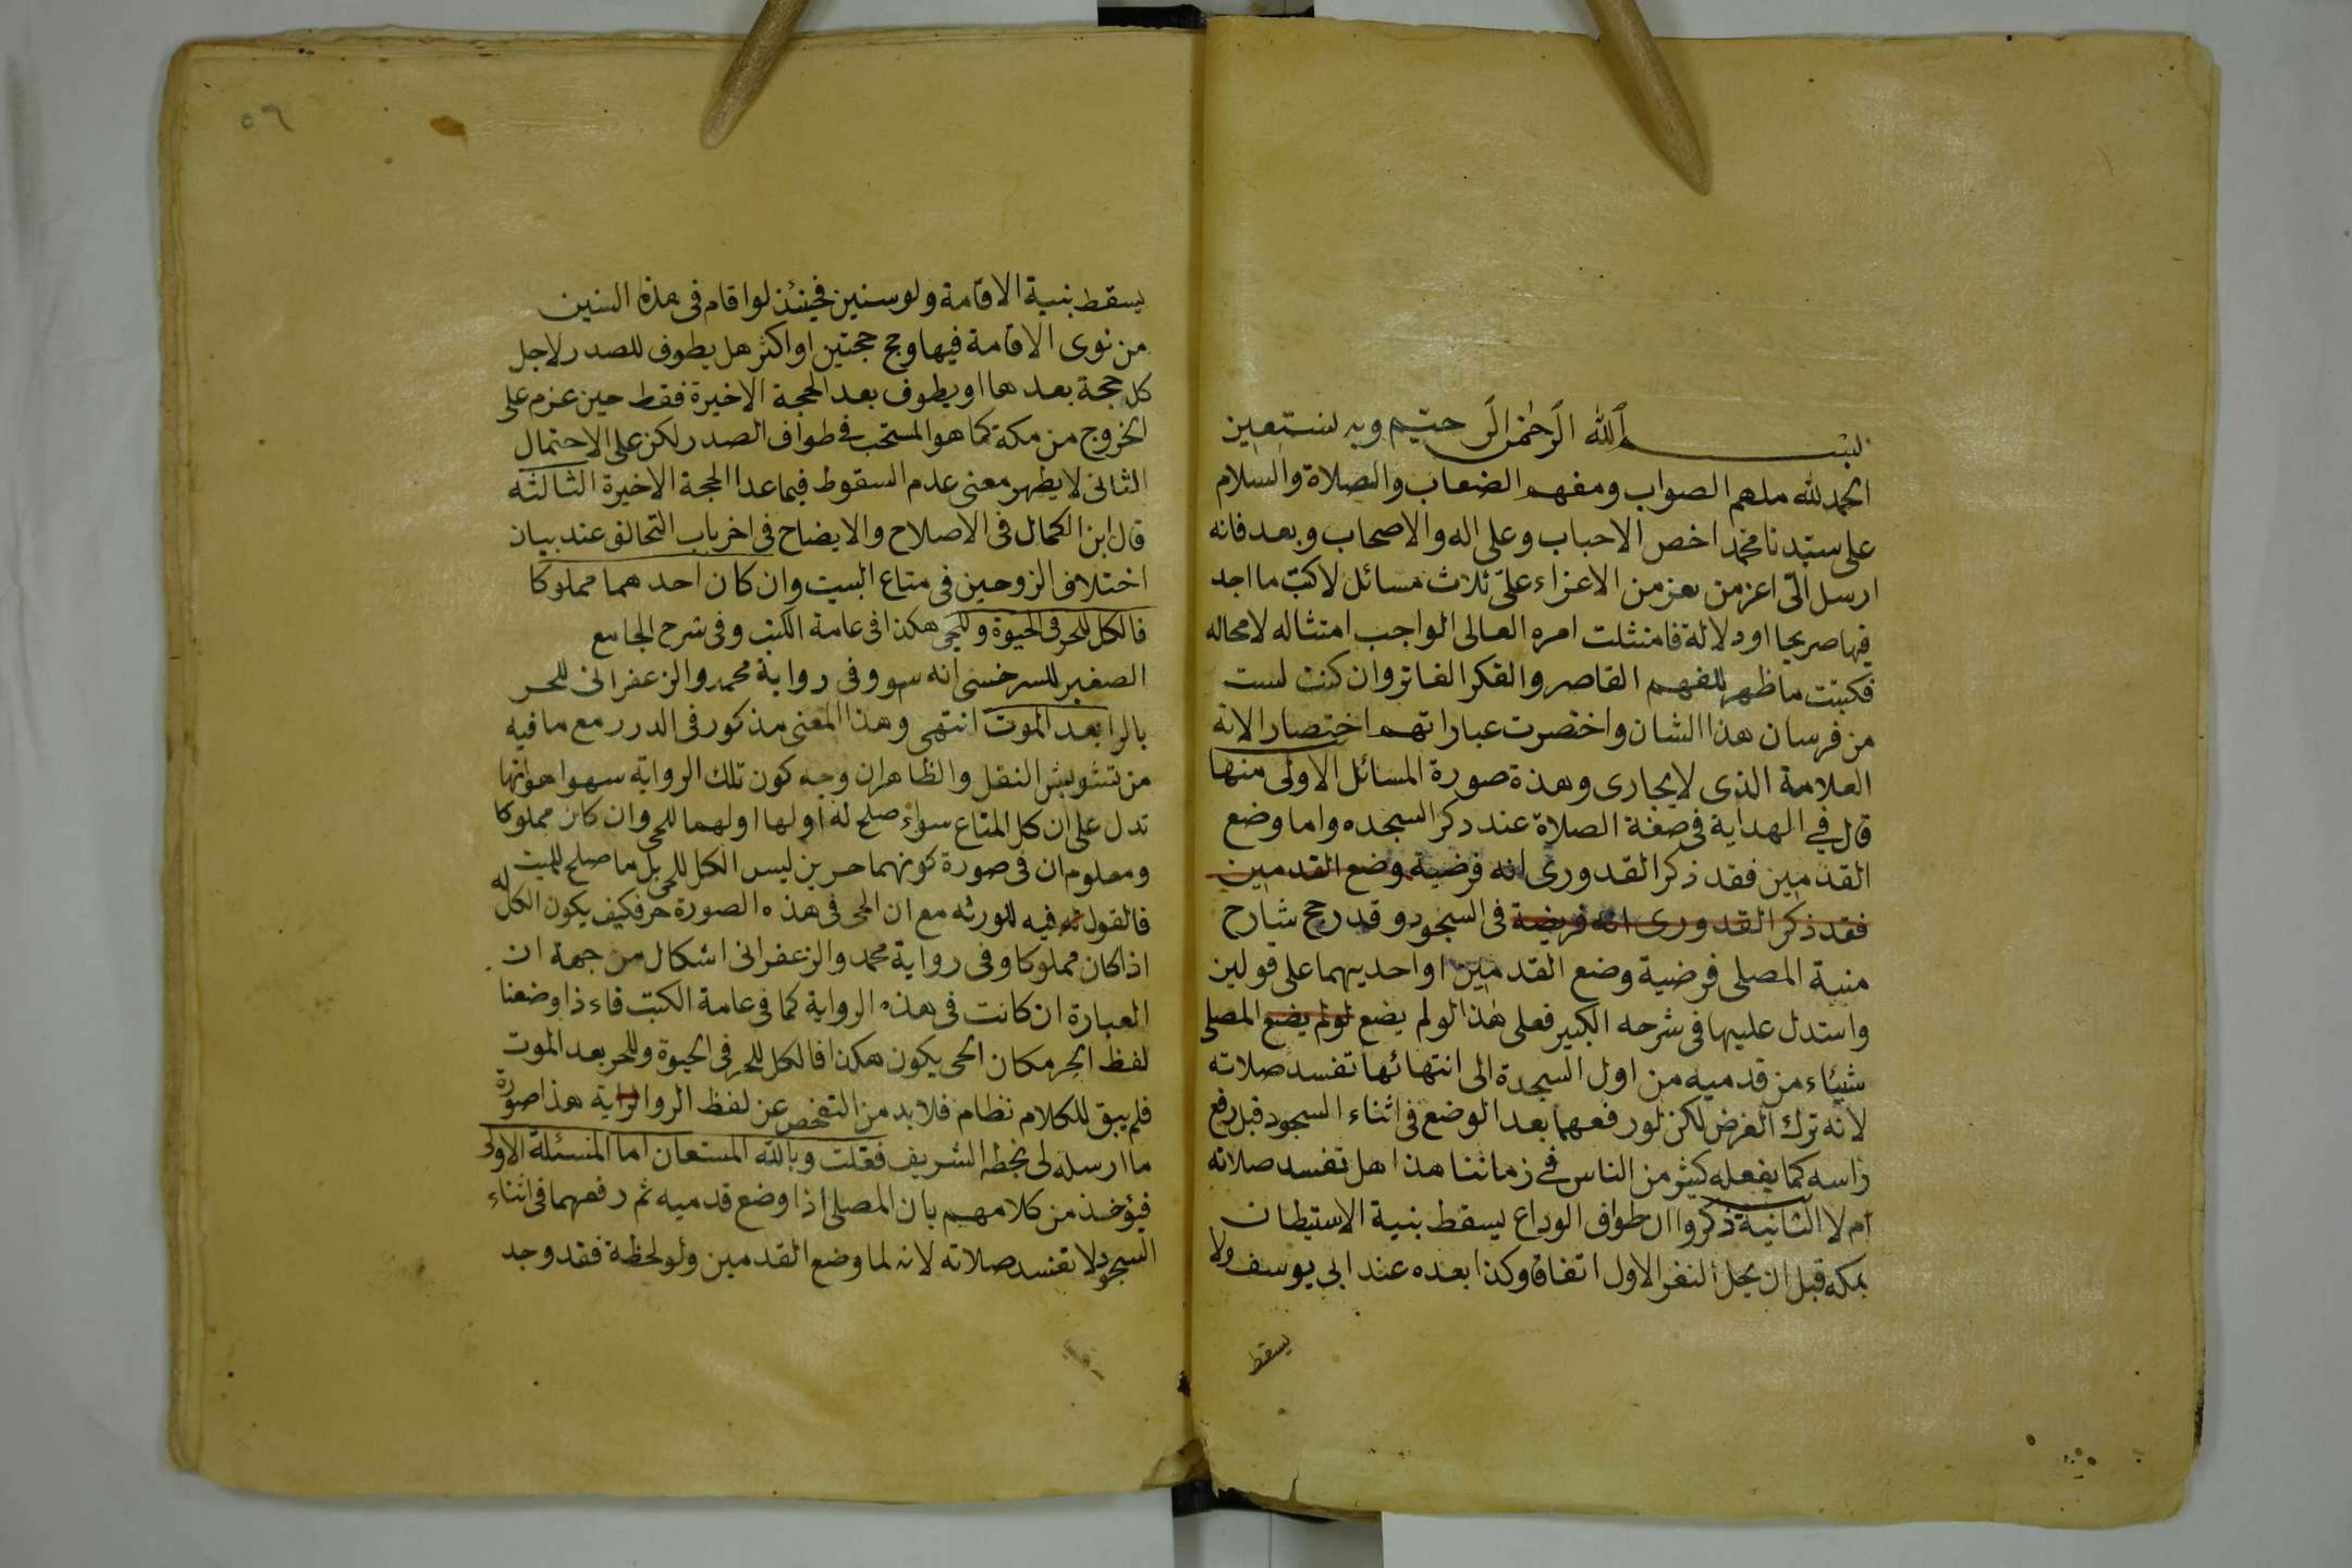 بسم الله الرحمن الرحيم وبه نستعين
الحمد لله ملهم الصواب ومفهم الصعاب والصلاة والسلام
على سيدنا محمد اخص الاحباب وعلى اله والاصحاب وبعد فانه
ارسل الى اعز من يعز من الاعزاء على ثلاث مسائل لاكتب ما اجد
فيها صريحا او دلالة فامتثلت امره العالى الواجب امتثاله لامحاله
فكتبت ما ظهر للفهم القاصر والفكر الفاتر وان كنت لست
من فرسان هذا الشان واختصرت عباراتهم اختصارا لانه
العلامة الذى لايجارى وهذة صورة المسائل الاولى منها
قال في الهداية فى صفة الصلاة عند ذكر السجده واما وضع
القدمين فقد ذكر القدورى انه فرضية وضع القدمين
فقد ذكر القدورى انه فريضة فى السجود وقد رجح شارح
منية المصلى فرضية وضع القدمين او احديهما على قولين
واستدل عليها فى شرحه الكبير فعلى هذا لو لم يضع لو لم يضع المصلى
شيئاء من قدميه من اول السجدة الى انتهائها تفسد صلاته
لانه ترك الفرض لكن لو رفعهما بعد الوضع فى اثناء السجود قبل رفع
راسه كما يفعله كثير من الناس في زماننا هذا هل تفسد صلاته
ام لا الثانية ذكروا ان طواف الوداع يسقط بنية الاستيطان
بمكه قبل ان يحل النفر الاول اتفاق وكذا بعده عند ابي يوسف ولا
يسقط
٥٩
يسقط بنية الاقامة ولو سنين فحينئذ لو اقام فى هذه السنين
من نوى الاقامة فيها وحج حجتين او اكثر هل يطوف للصدر لاجل
كل حجة بعدها او يطوف بعد الحجة الاخيرة فقط حين عزم على
الخروج من مكة كما هو المستحب في طواف الصدر لكن على الاحتمال
الثانى لا يظهر معنى عدم السقوط فيما عدا الحجة الاخيرة الثالثه
قال ابن الكمال فى الاصلاح والايضاح فى اخر باب التحالف عند بيان
اختلاف الزوجين فى متاع البيت وان كان احدهما مملوكا
فالكل للحر فى الحيوة وللحى هكذا فى عامة الكتب وفى شرح الجامع
الصغير للسرخسى انه سهو وفى رواية محمد والزعفرانى للحر
بالرا بعد الموت انتهى وهذا المعنى مذكور فى الدرر مع ما فيه
من تشويش النقل والظاهر ان وجه كون تلك الرواية سهوا هو انها
تدل على ان كل المتاع سواء صلح له او لها او لهما للحى وان كان مملوكا
ومعلوم ان فى صورة كونهما حرين ليس الكل للحى بل ما صلح للميت
فالقول فيه لورثه مع ان الحى فى هذه الصورة حر فكيف يكون الكل له
اذا كان مملوكا وفى رواية محمد والزعفرانى اشكال من جهة ان
العبارة ان كانت فى هذه الرواية كما فى عامة الكتب فاءذا وضعنا
لفظ الحر مكان الحى يكون هكذا فالكل للحر فى الحيوة وللحر بعد الموت
فلم يبق للكلام نظام فلا بد من التفحص عن لفظ الرواية هذا صورة
ما ارسله لى بخطه الشريف فقلت وبالله المستعان اما المسئلة الاولى
فيؤخذ من كلامهم بان المصلى اذا وضع قدميه ثم رفعهما فى اثناء
السجود لا تفسد صلاته لانه لما وضع القدمين ولو لحظة فقد وجد